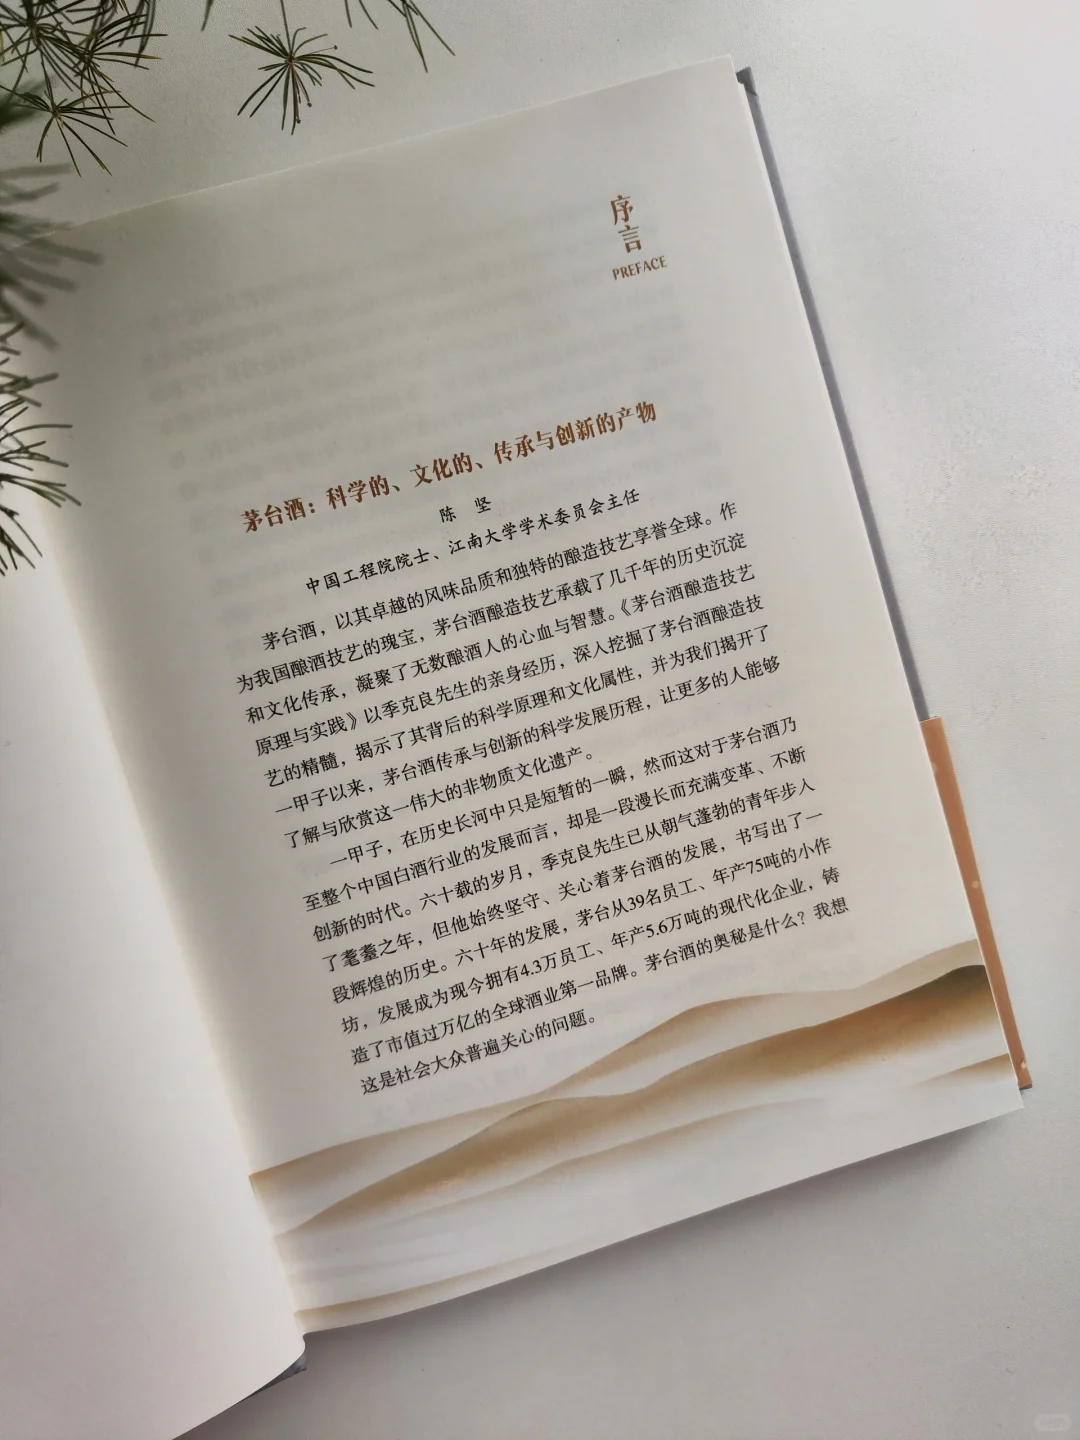 序言
PREFACE
茅台酒：科学的、文化的、传承与创新的产物
陈 坚
中国工程院院士、江南大学学术委员会主任
茅台酒，以其卓越的风味品质和独特的酿造技艺享誉全球。作
为我国酿酒技艺的瑰宝，茅台酒酿造技艺承载了几千年的历史沉淀
和文化传承，凝聚了无数酿酒人的心血与智慧。《茅台酒酿造技艺
原理与实践》以季克良先生的亲身经历，深入挖掘了茅台酒酿造技
艺的精髓，揭示了其背后的科学原理和文化属性，并为我们揭开了
一甲子以来，茅台酒传承与创新的科学发展历程，让更多的人能够
了解与欣赏这一伟大的非物质文化遗产。
一甲子，在历史长河中只是短暂的一瞬，然而这对于茅台酒乃
至整个中国白酒行业的发展而言，却是一段漫长而充满变革、不断
创新的时代。六十载的岁月，季克良先生已从朝气蓬勃的青年步人
了耄耋之年，但他始终坚守、关心着茅台酒的发展，书写出了一
段辉煌的历史。六十年的发展，茅台从39名员工、年产75吨的小作
坊，发展成为现今拥有4.3万员工、年产5.6万吨的现代化企业，铸
造了市值过万亿的全球酒业第一品牌。茅台酒的奥秘是什么？我想
这是社会大众普遍关心的问题。